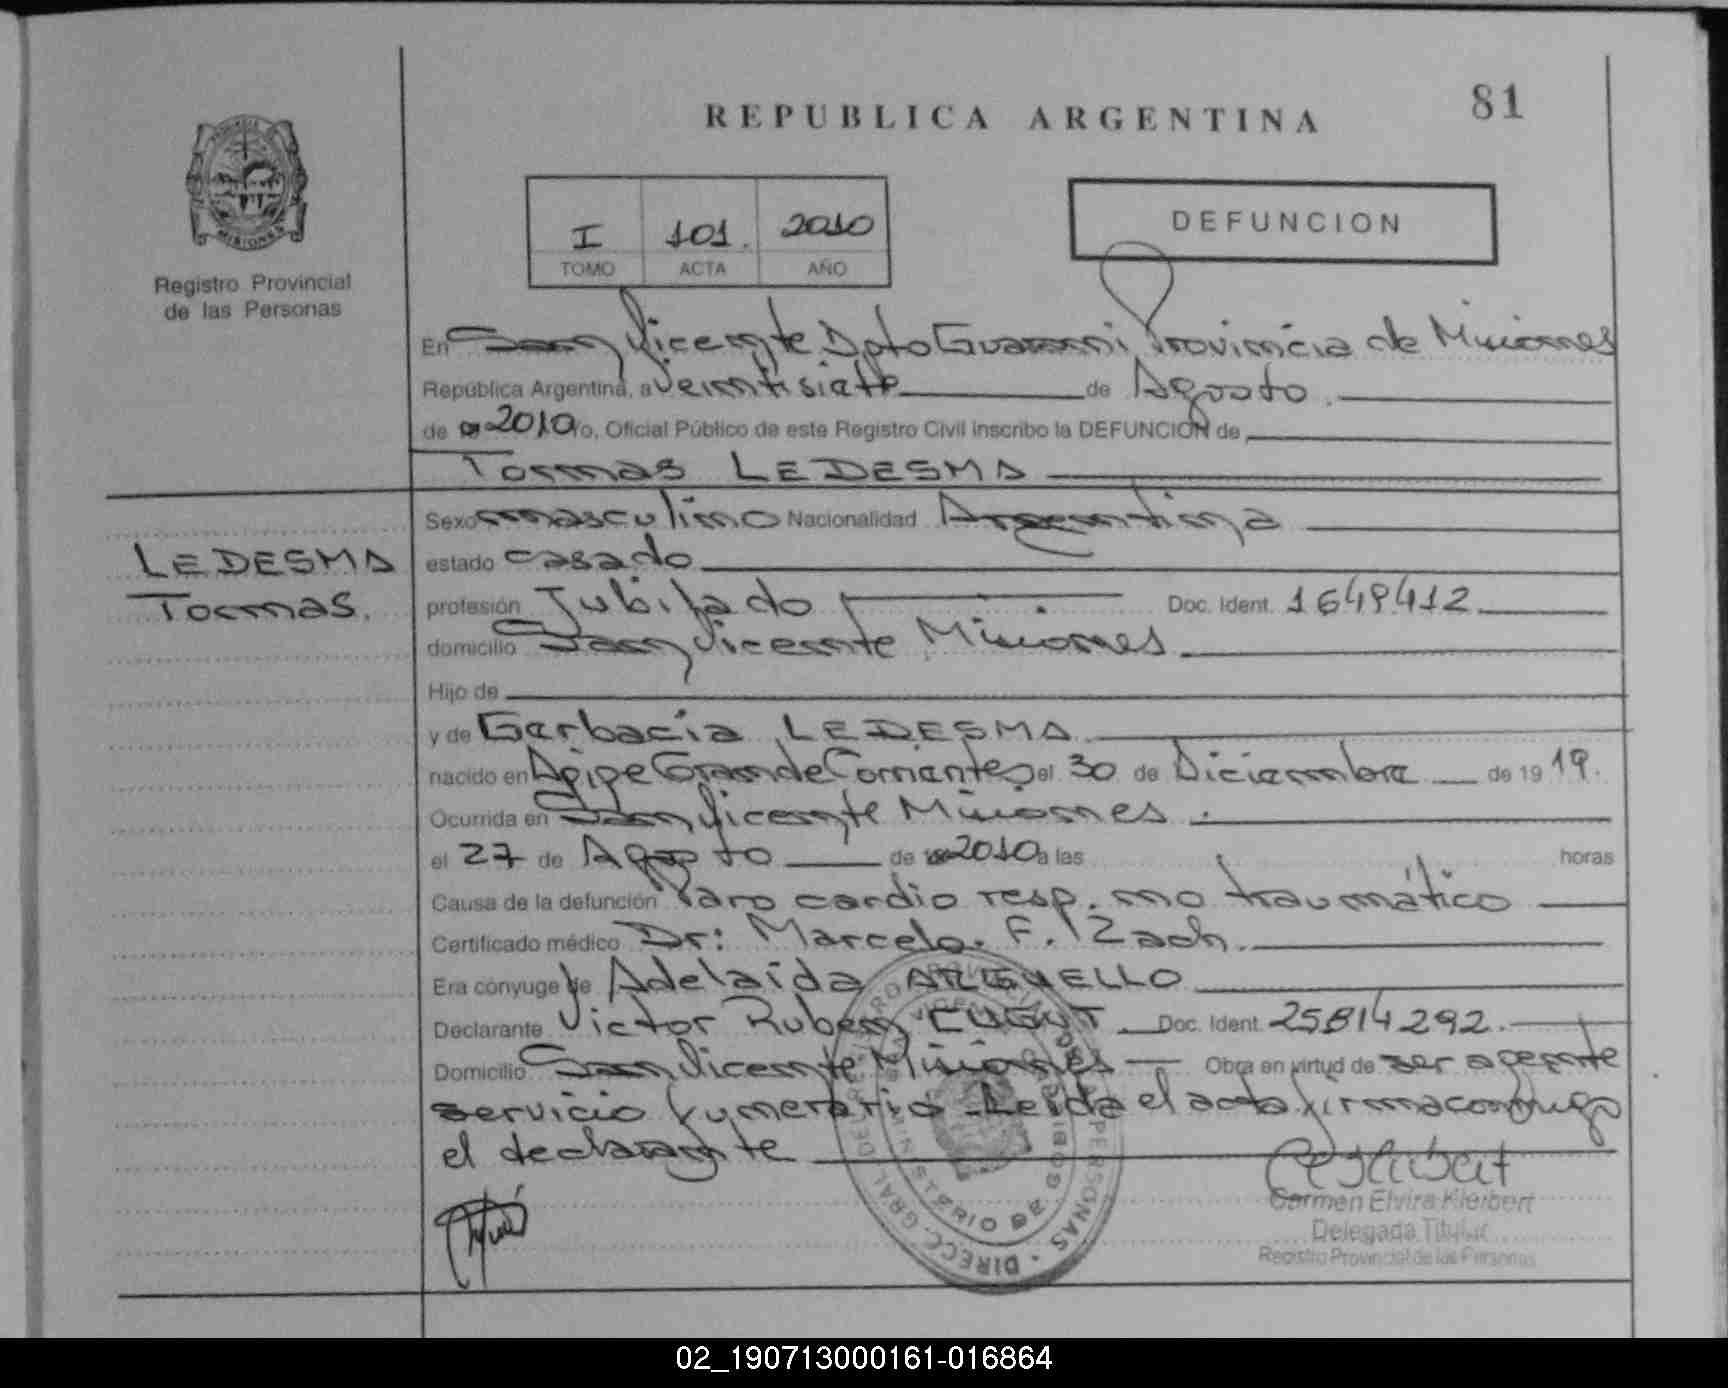 81
REPUBLICA ARGENTINA
PROVINCIA DE
MISIONES
Registro Provincial
de las Personas
I 101. 2010
TOMO ACTA AÑO
DEFUNCION
En San Vicente Dpto Guarani Provincia de Misiones
República Argentina, a veintisiete de Agosto.
de 2010 Yo, Oficial Público de este Registro Civil inscribo la DEFUNCION de
Tomas LEDESMA
LEDESMA
Tomas.
Sexo masculino Nacionalidad Argentina
estado casado
profesión Jubilado Doc. Ident. 1649.412
domicilio San Vicente Misiones
Hijo de
y de Garbacia LEDESMA
nacido en Apipe Grande Corrientes el 30 de Diciembre de 19 19.
Ocurrida en San Vicente Misiones.
el 27 de Agosto de 2010 a las horas
Causa de la defunción Paro cardio resp. no traumático
Certificado médico Dr: Marcelo. F. Zach.
Era cónyuge de Adelaida ARGUELLO
Declarante Victor Ruben Doc. Ident. 25814292.
Domicilio San Vicente Misiones Obra en virtud de ser agente
servicio funerario. Leida el acta firma conmigo
el declarante
Carmen Elvira Kleibert
Delegada Titular
Registro Provincial de las Personas
02_190713000161-016864